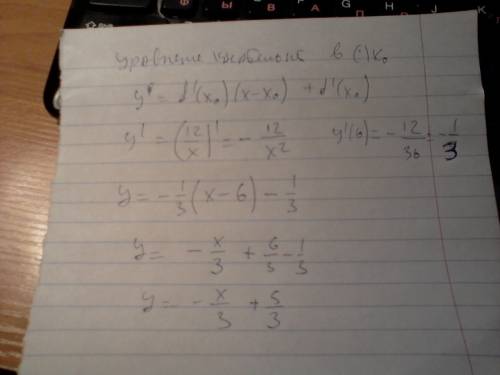 уравнение касательной в (·) x₀
y = f'(x₀)(x-x₀) + f'(x₀)
y' = (12/x)' = - 12/x² y'(6) = - 12/36 = - 1/3
y = - 1/3 (x-6) - 1/3
y = - x/3 + 6/3 - 1/3
y = - x/3 + 5/3